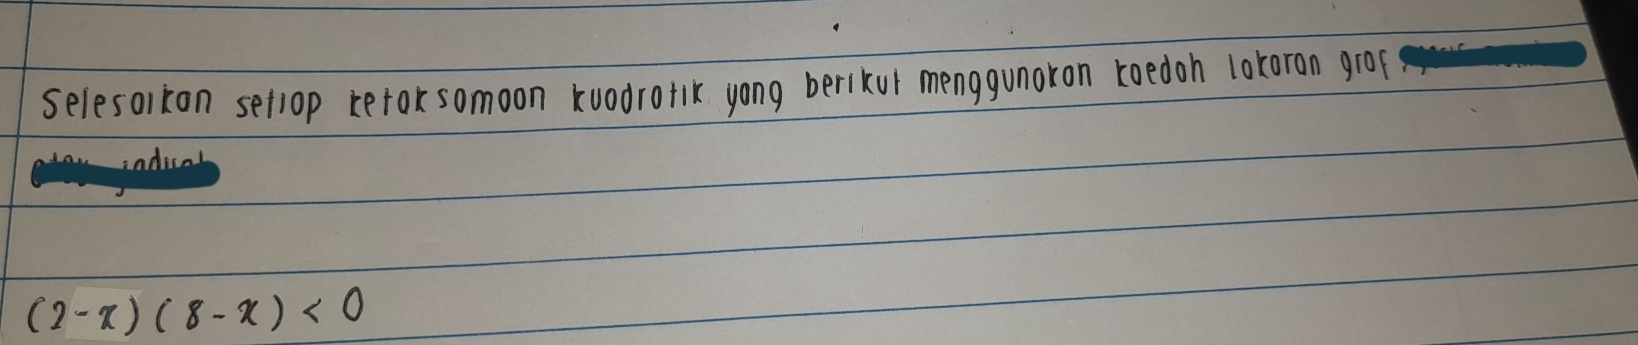 Selesaikan setiap ketaksamaan kuadratik yang berikut menggunakan kaedah lakaran graf
(2-x)(8-x) < 0